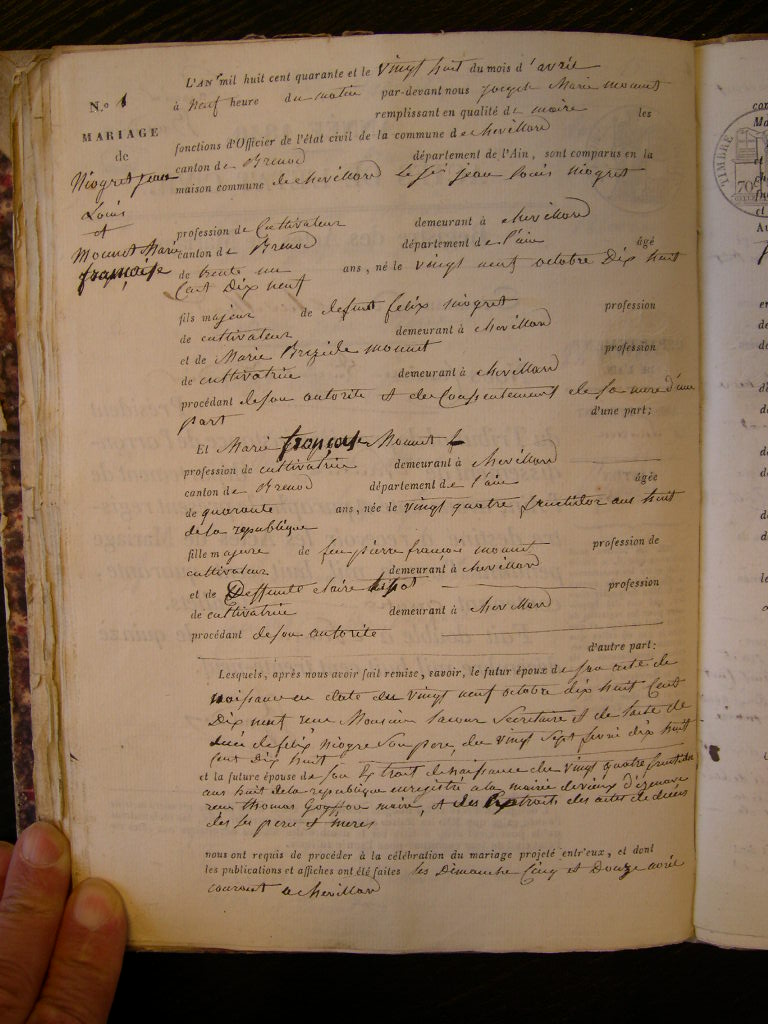 N.o 1
MARIAGE
de
Niogret jean
Louis
et
Mounet Marie
françoise
L'AN mil huit cent quarante et le vingt huit du mois d'avril
à neuf heure du matin par-devant nous joseph Marie mounet
remplissant en qualité de maire les
fonctions d'Officier de l'état civil de la commune de chevillard
canton de Brenod département de l'Ain, sont comparus en la
maison commune de chevillard le Sr jean Louis niogret
profession de Cultivateur demeurant à chevillard
canton de Brenod département de l'ain âgé
de trente un ans, né le vingt neuf octobre Dix huit
Cent Dix neuf
fils majeur de defunt felix niogret profession
de cultivateur demeurant à chevillard
et de Marie Brigide mounet profession
de cultivatrice demeurant à chevillard
procédant de son autorité et du Consentement de sa mere d'une
part d'une part;
Et Marie françoise Mounet
profession de cultivatrice demeurant à chevillard
canton de Brenod département de l'ain âgée
de quarante ans, née le vingt quatre fructidor ans huit
de la republique
fille majeure de feu pierre françois mounet profession de
cultivateur demeurant à chevillard
et de Deffunte claire profession
de cultivatrice demeurant à chevillard
procédant de son autorité
d'autre part:
Lesquels, après nous avoir fait remise, savoir, le futur époux de son acte de
naissance en date du vingt neuf octobre dix huit Cent
Dix neuf Monsieur Secretaire et de l'acte de
décè de felix niogre son pere, du vingt Sept dix huit
Cent Dix huit
et la future épouse de son Extrait de naissance du vingt quatre fructidor
ans huit de la republique enregistré a la mairie de vieux d'izenave
thomas maire, et des Extraits des actes de décès
des ses pere et meres
nous ont requis de procéder à la célébration du mariage projeté entr'eux, et dont
les publications et affiches ont été faites les Dimanche Cinq et Douze avril
courant a chevillard
TIMBRE
70